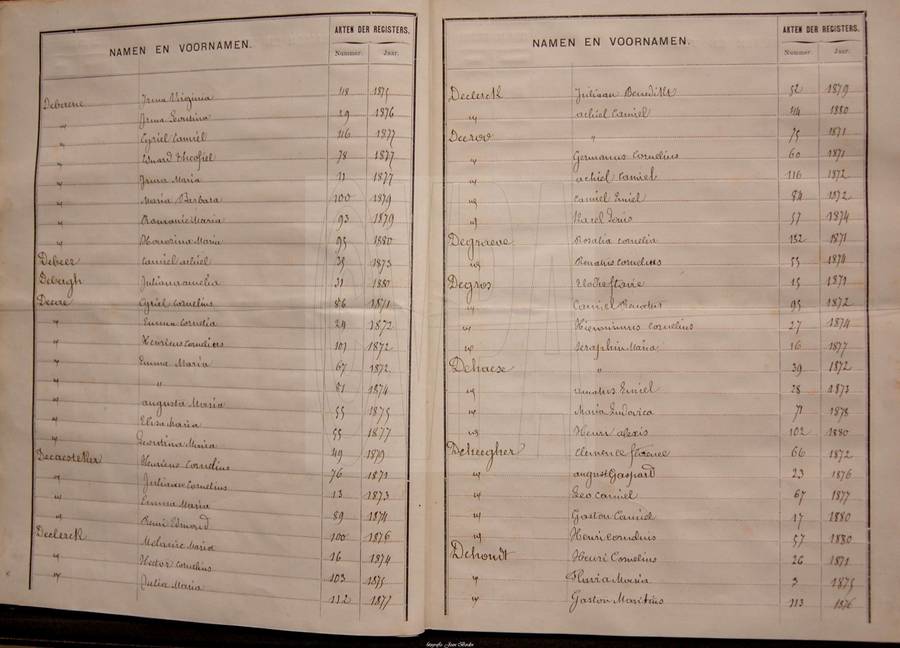 NAMEN EN VOORNAMEN.
AKTEN DER REGISTERS.
Nummer. Jaar.
Irma Virginia 118 1875
Irma Leontina 29 1876
" Cyriel Camiel 116 1877
" Eduard Theofiel 78 1877
" Irma Maria 11 1877
" Maria Barbara 100 1879
" Romanie Maria 93 1879
" Honorina Maria 95 1880
Debeer Camiel Achiel 35 1873
Juliana Amelia 31
Decae Cyriel Cornelius 86 1871
" Emma Cornelia 24 1872
" Henricus Cornelius 101 1872
" Emma Maria 67 1872
" " 81 1874
" Augusta Maria 55 1875
" Elisa Maria 55 1877
" Leontina Maria 49 1879
Decaesteker Henricus Cornelius 76 1871
" Juliaan Cornelius 13 1873
" Emma Maria 89 1874
" Remi Edmond 100 1876
Declerck Melanie Maria 16 1874
" Hector Cornelius 103 1875
" Julia Maria 112 1877
NAMEN EN VOORNAMEN.
AKTEN DER REGISTERS.
Nummer. Jaar.
Declerck Juliaan Benedikt 52 1879
" Achiel Camiel 114 1880
" 75 1871
" Germanus Cornelius 60 1871
" Achiel Camiel 116 1872
" Camiel Emiel 84 1872
" Karel 57 1874
Degraeve Rosalia Cornelia 132 1871
" Renatus Cornelius 55 1874
Degros 15 1871
" Camiel Renatus 95 1872
" Hieronimus Cornelius 27 1874
" Seraphin Maria 16 1877
Dehaese " 39 1872
" Amatus Emiel 28 1873
" Maria Ludovica 71 1873
" Henri Alexis 102 1880
Clemence Florence 66 1872
" August Gaspard 23 1876
" Leo Camiel 67 1877
" Gaston Camiel 17 1880
" Henri Cornelius 57 1880
Dehondt Henri Cornelius 26 1871
" Flavia Maria 3 1875
" Gaston Maritius 113 1876